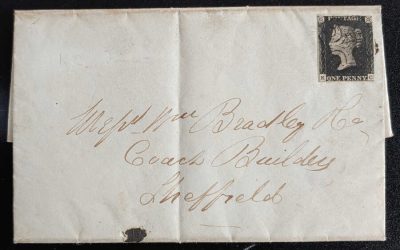 POSTAGE
ONE PENNY
Messrs Wm Bradley & Co
Coach Builders
Sheffield